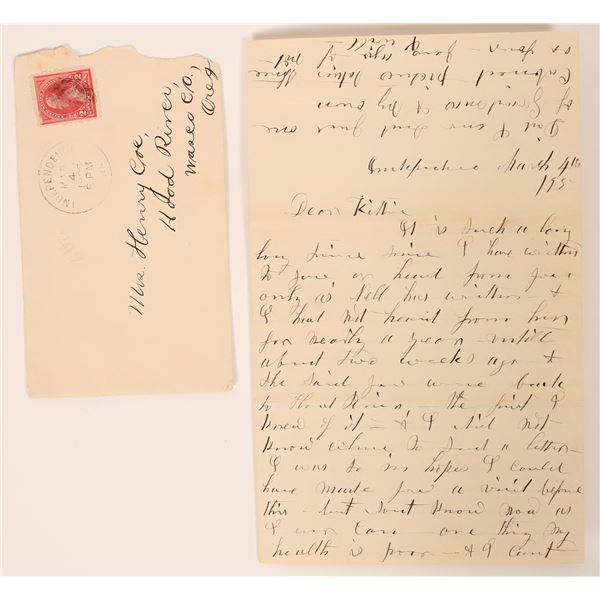 INDEPENDENCE
MAR
4
6 PM
2 2
Mrs. Henry Coe,
Hood River,
Wasco Co,
Oreg
Did I ever send you one
of Geneviev & my own
Cabinet picture taken
as you
I will
Independence March 4th
195
Dear Kittie
It is such a long
long time since I have written
to you or heard from you
only as Nell has written - &
I had not heard from her
for nearly a year - untill
about two weeks ago - &
she said you were back
to Hood River - the first I
knew of it - & I did not
know where to send a letter -
I was so in hopes I could
have made you a visit before
this - but don't know now as
I ever can - one thing my
health is poor - & I can't